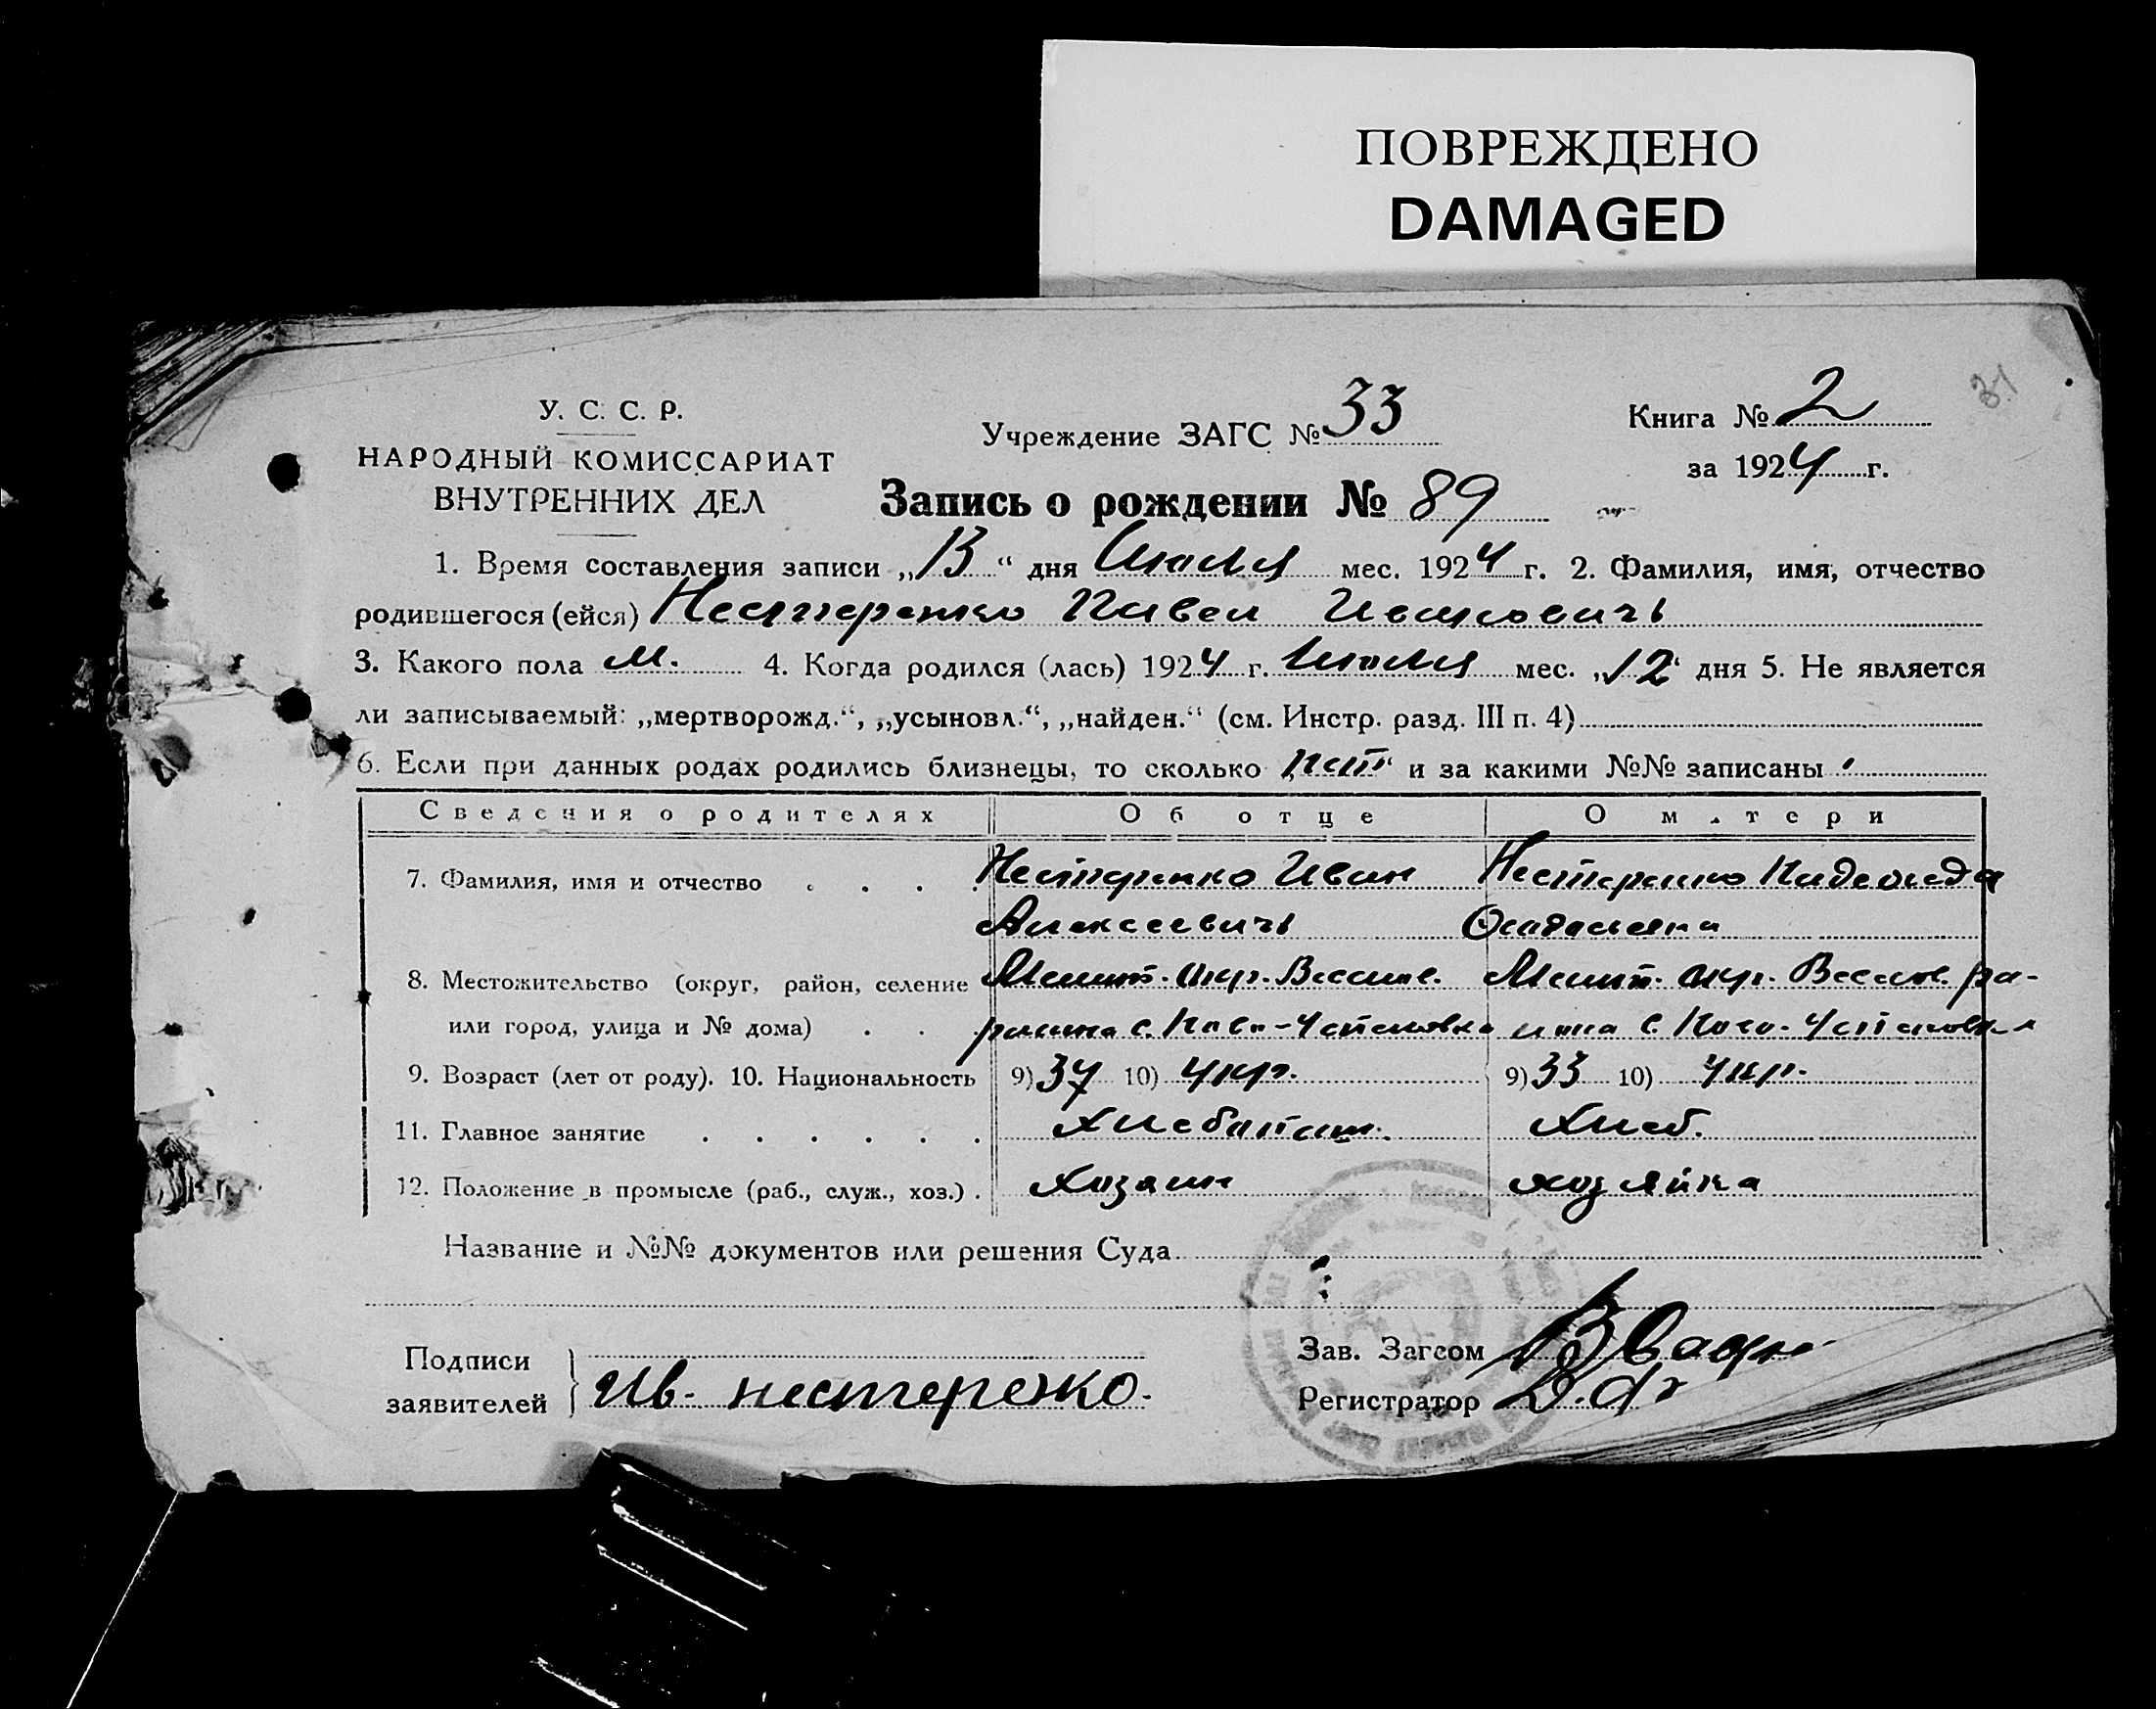 ПОВРЕЖДЕНО
DAMAGED
31
У. С. С. Р.
НАРОДНЫЙ КОМИССАРИАТ
ВНУТРЕННИХ ДЕЛ
Учреждение ЗАГС № 33
Книга № 2
за 1924 г.
Запись о рождении № 89
1. Время составления записи „13“ дня Июля мес. 1924 г. 2. Фамилия, имя, отчество
родившегося (ейся) Нестеренко Павел Ивановичъ
3. Какого пола м. 4. Когда родился (лась) 1924 г. Июля мес. „12“ дня 5. Не является
ли записываемый: „мертворожд.“, „усыновл.“, „найден.“ (см. Инстр. разд. III п. 4)
6. Если при данных родах родились близнецы, то сколько нет и за какими №№ записаны
Сведения о родителях Об отце О матери
7. Фамилия, имя и отчество Нестеренко Иван Нестеренко Надежда
Алексеевичъ
8. Местожительство (округ, район, селение Мелит. окр. Весел. Мелит. окр. Весел. ра-
или город, улица и № дома) района с. Ново-Успеновка иона с. Ново-Успеновка
9. Возраст (лет от роду). 10. Национальность 9) 37 10) Укр. 9) 33 10) Укр.
11. Главное занятие Хлебопаш. Хлеб.
12. Положение в промысле (раб., служ., хоз.) Хозаин хозяйка
Название и №№ документов или решения Суда
Подписи
заявителей Ив. нестеренко.
Зав. Загсом
Регистратор